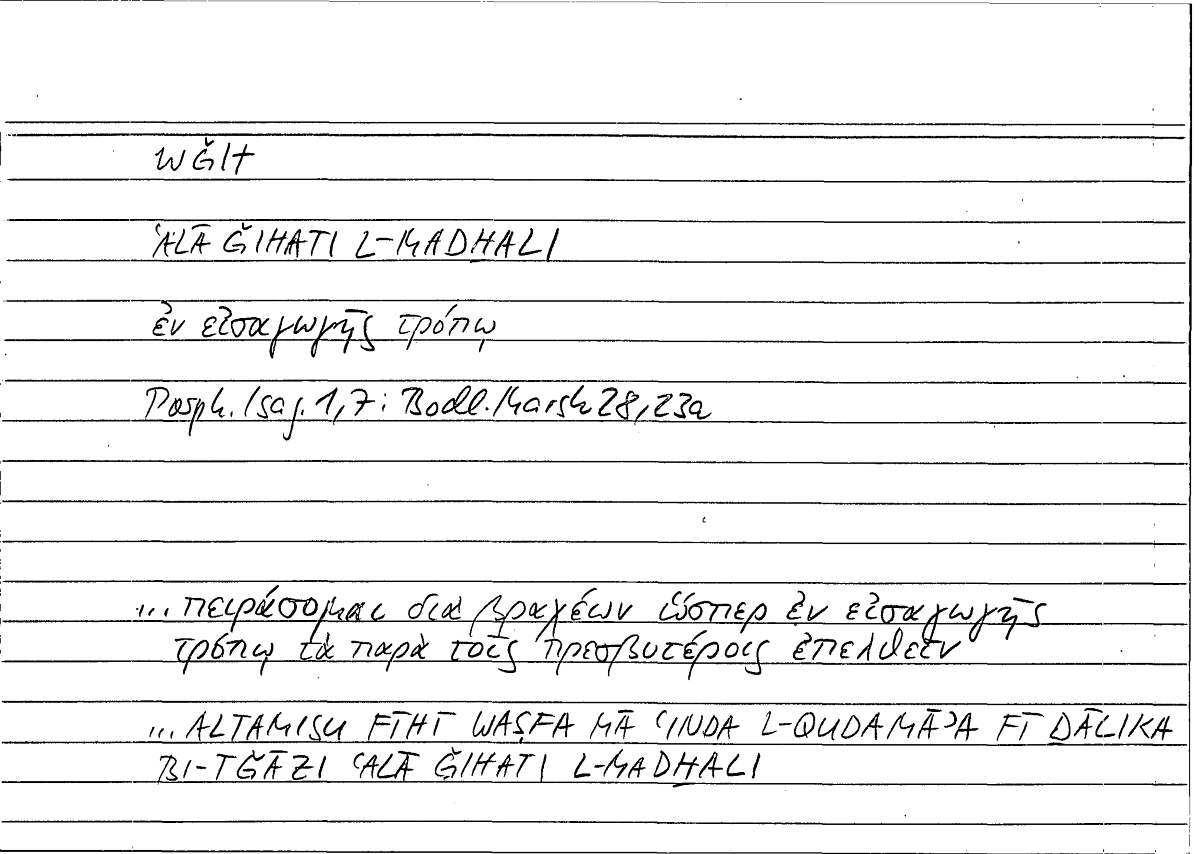 WǦIT
ʿALĀ ǦIHATI L-MADḪALI
ἐν εἰσαγωγῆς τρόπῳ
Porph. Isag. 1,7: Bodl. Marsh 28, 23a
... πειράσομαι διὰ βραχέων ὥσπερ ἐν εἰσαγωγῆς
τρόπῳ τὰ παρὰ τοῖς πρεσβυτέροις ἐπελθεῖν
... ALTAMISU FĪHĪ WAṢFA MĀ ʿINDA L-QUDAMĀʾA FĪ ḎĀLIKA
BI-TǦĀZI ʿALĀ ǦIHATI L-MADḪALI